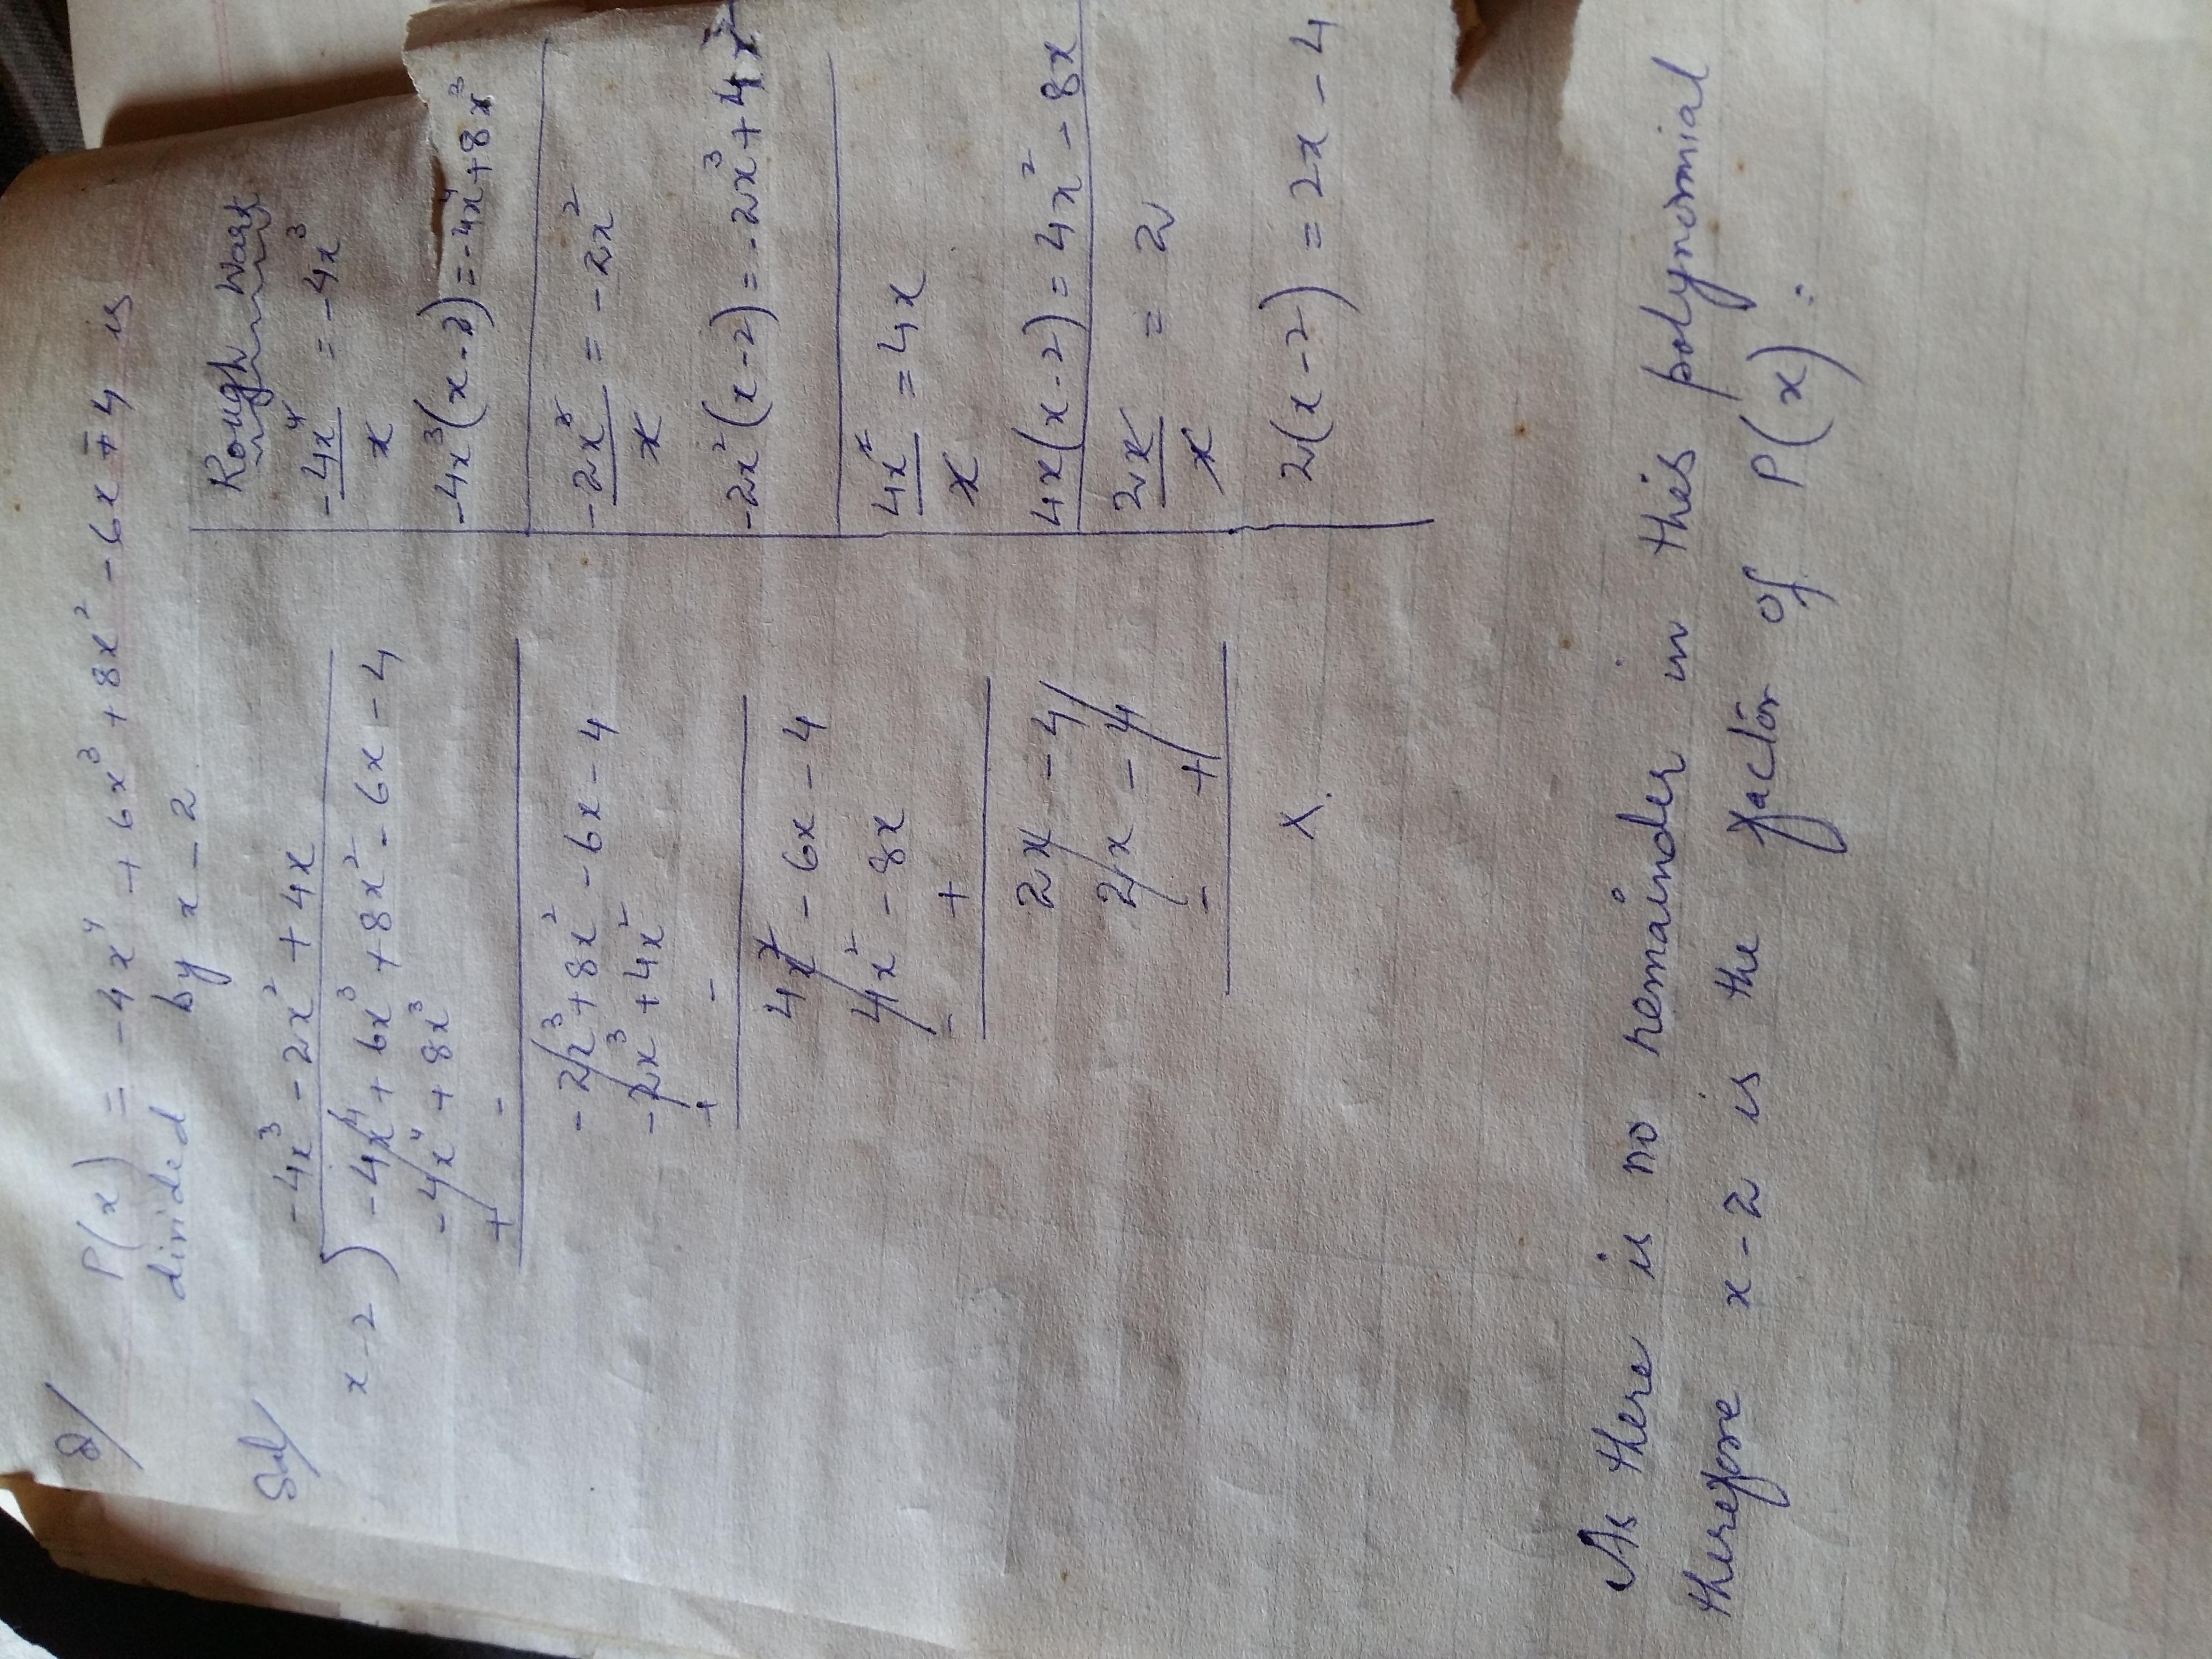 2/ P(x) = -4x⁴ + 6x³ + 8x² - 6x - 4 is
divided by x - 2
Sol/
-4x³ - 2x² + 4x
x - 2 ) -4x⁴ + 6x³ + 8x² - 6x - 4
-4x⁴ + 8x³
+ -
-2x³ + 8x² - 6x - 4
-2x³ + 4x²
+ -
4x² - 6x - 4
4x² - 8x
- +
2x - 4
2x - 4
- +
x.
Rough Work
-4x⁴/x = -4x³
-4x³(x-2) = -4x⁴ + 8x³
-2x³/x = -2x²
-2x²(x-2) = -2x³ + 4x²
4x²/x = 4x
4x(x-2) = 4x² - 8x
2x/x = 2
2(x-2) = 2x - 4
As there is no remainder in this polynomial
therefore x-2 is the factor of P(x).